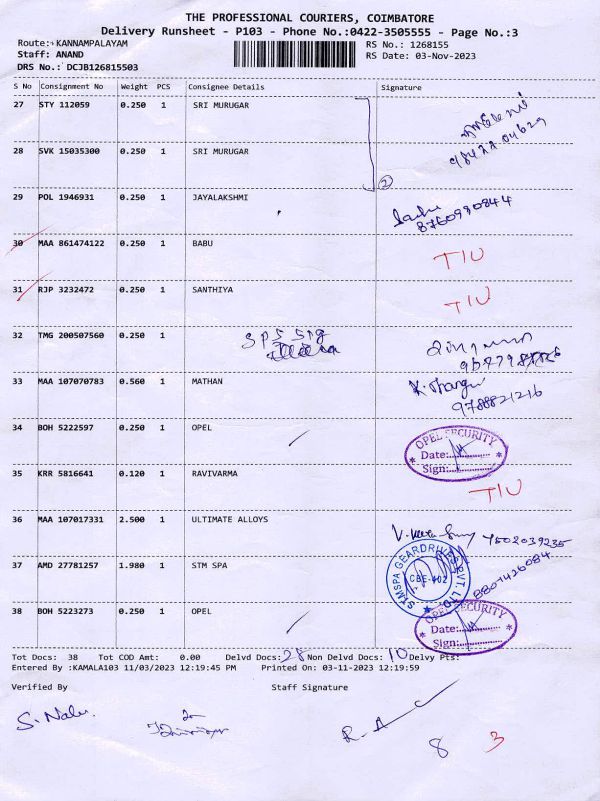 THE PROFESSIONAL COURIERS, COIMBATORE
Delivery Runsheet - P103 - Phone No.:0422-3505555 - Page No.:3
Route:- KANNAMPALAYAM RS No.: 1268155
Staff: ANAND RS Date: 03-Nov-2023
DRS No.: DCJB126815503
S No Consignment No Weight PCS Consignee Details Signature
27 STY 112059 0.250 1 SRI MURUGAR
28 SVK 15035300 0.250 1 SRI MURUGAR
2
29 POL 1946931 0.250 1 JAYALAKSHMI
8760990844
30 MAA 861474122 0.250 1 BABU TIU
31 RJP 3232472 0.250 1 SANTHIYA TIU
32 TMG 200507560 0.250 1 SPS
33 MAA 107070783 0.560 1 MATHAN
9788821216
34 BOH 5222597 0.250 1 OPEL
OPEL SECURITY
Date:
Sign:
35 KRR 5816641 0.120 1 RAVIVARMA TIU
36 MAA 107017331 2.500 1 ULTIMATE ALLOYS
7502039235
37 AMD 27781257 1.980 1 STM SPA
STMSPA GEARDRIVES PVT. LTD
CBE-402
8807426084
38 BOH 5223273 0.250 1 OPEL
OPEL SECURITY
Date:
Sign:
Tot Docs: 38 Tot COD Amt: 0.00 Delvd Docs: 28 Non Delvd Docs: 10 Delvy Pts:
Entered By :KAMALA103 11/03/2023 12:19:45 PM Printed On: 03-11-2023 12:19:59
Verified By Staff Signature
8 3